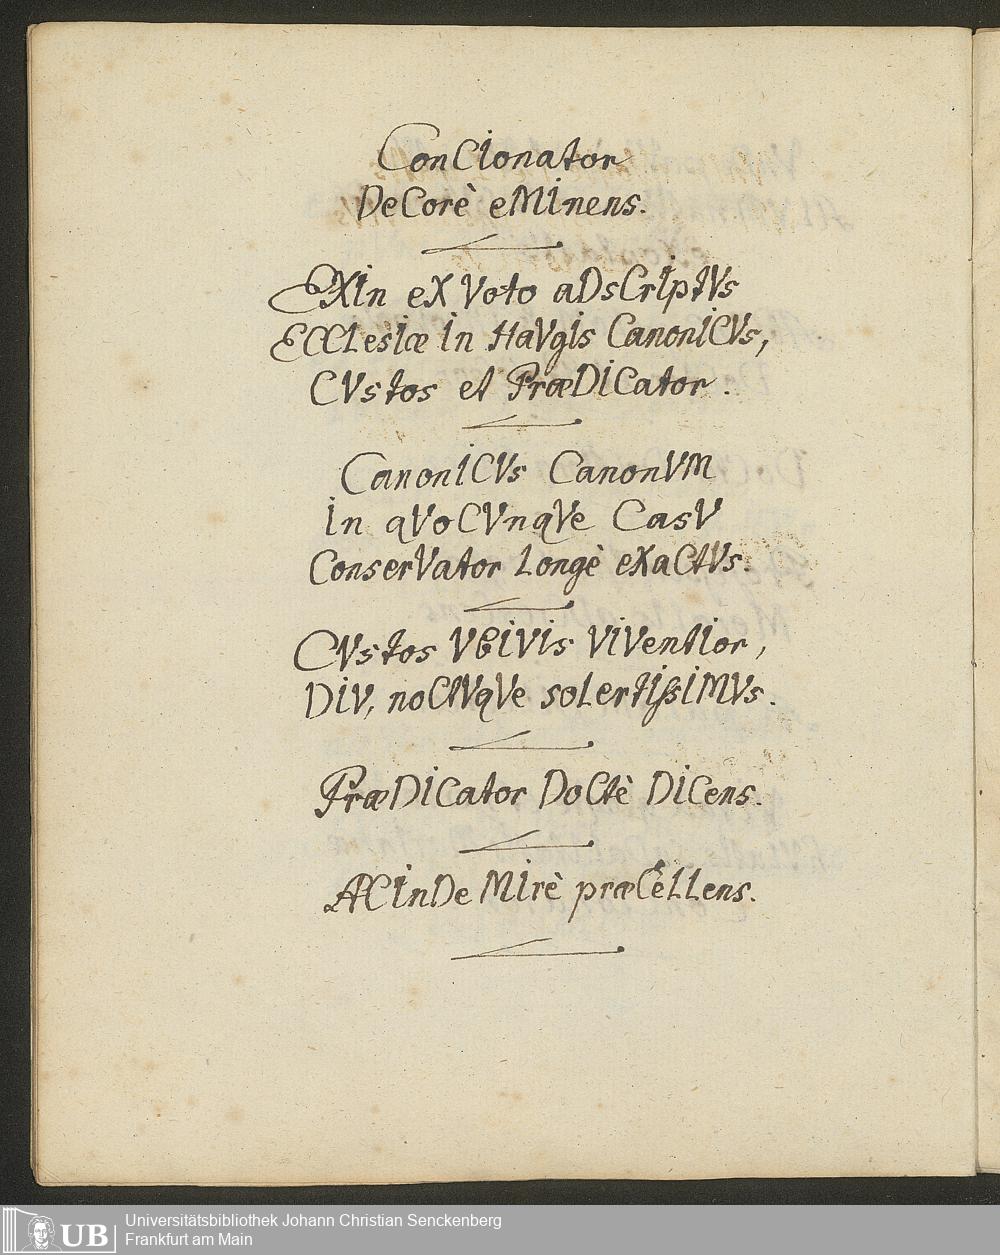 ConCIonator
DeCorè eMInens.
EXIn eX Voto aDsCrIptVs
ECCLesIæ In HaVgIs CanonICVs,
CVstos et PræDICator.
CanonICVs CanonVM
In qVoCVnqVe CasV
ConserVator Longè eXaCtVs.
CVstos VbIVIs VIVentIor,
DIV, noCtVqVe soLertIßIMVs.
PræDICator DoCtè DICens.
AC InDe MIrè præCeLLens.
UB
Universitätsbibliothek Johann Christian Senckenberg
Frankfurt am Main